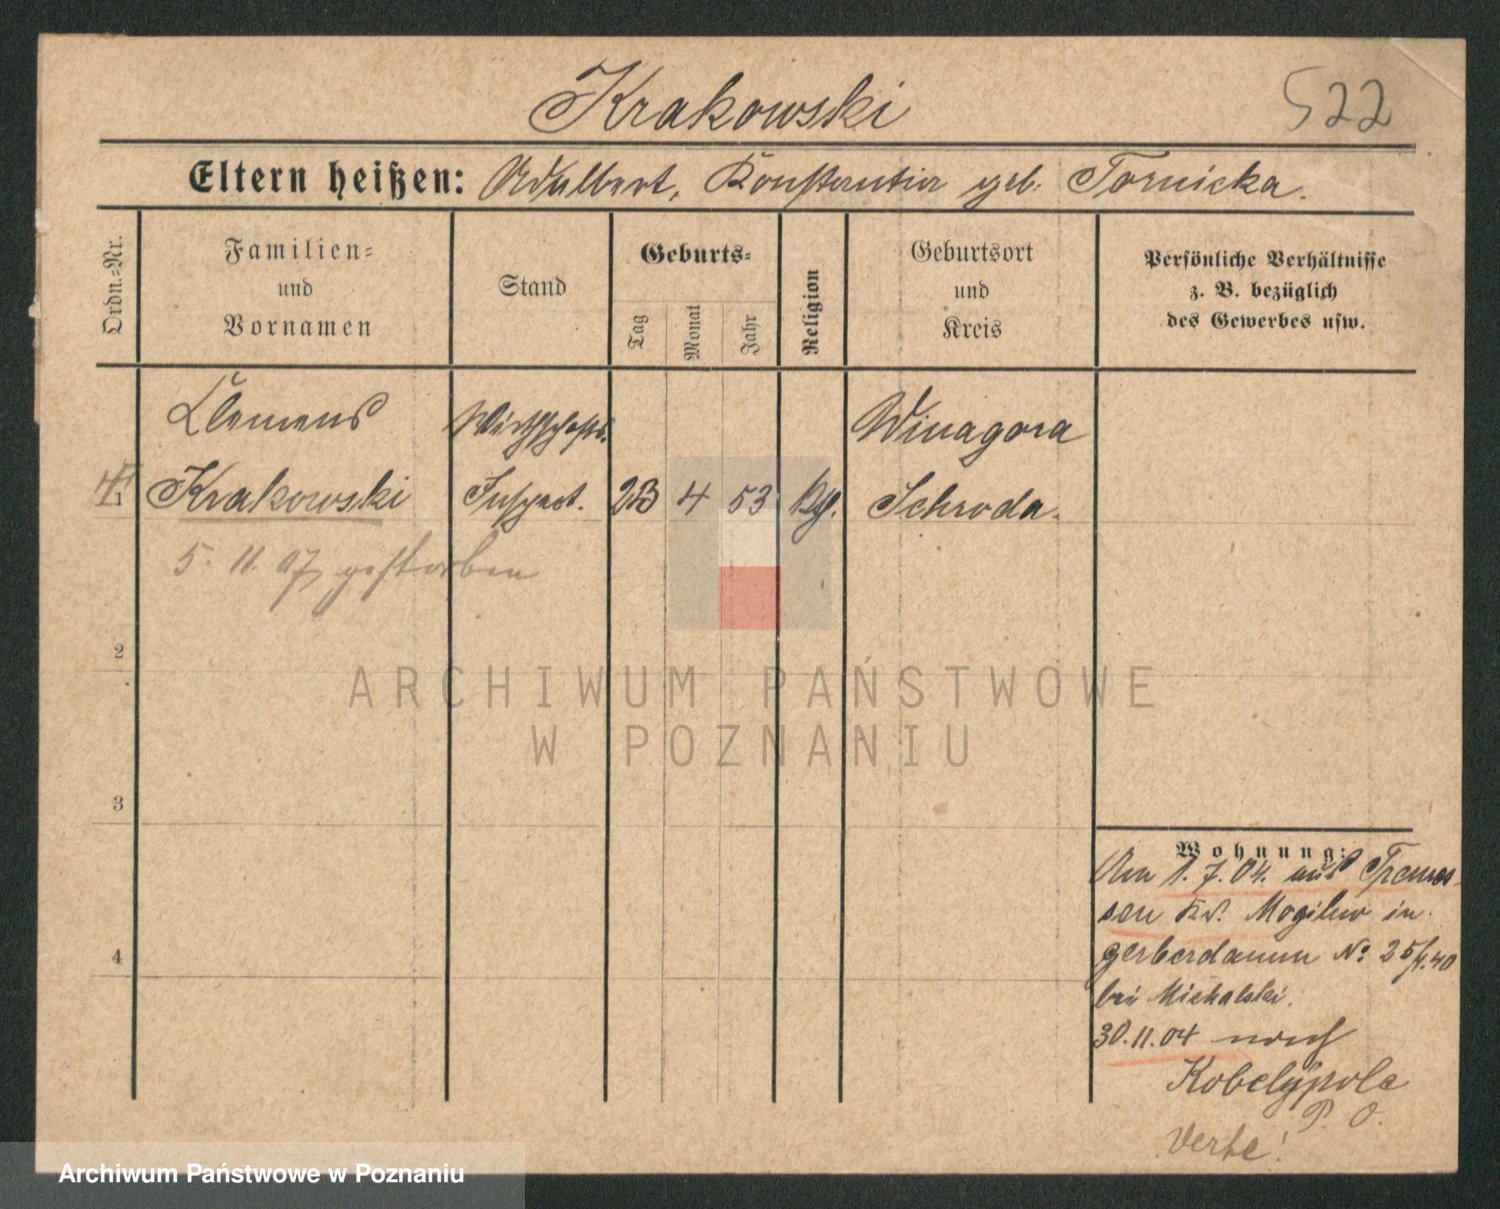 Krakowski
522
Eltern heißen: Adalbert, Konstantia geb. Tornicka.
Ordn.=Nr.
Familien=
und
Vornamen
Stand
Geburts=
Tag
Monat
Jahr
Religion
Geburtsort
und
Kreis
Persönliche Verhältnisse
z. B. bezüglich
des Gewerbes usw.
Clemens
Krakowski
Wirthschafts.
Inspect.
23 4 53
Winagora
Schroda.
5. 11. 07 gestorben
2
3
4
Wohnung:
Am 1. 7. 04. aus Tremes-
sen Kr. Mogilno in
gerberdamm No 25
bei Michalski.
30. 11. 04 nach
Kobelýpole
P. O.
ARCHIWUM PAŃSTWOWE
W POZNANIU
Archiwum Państwowe w Poznaniu